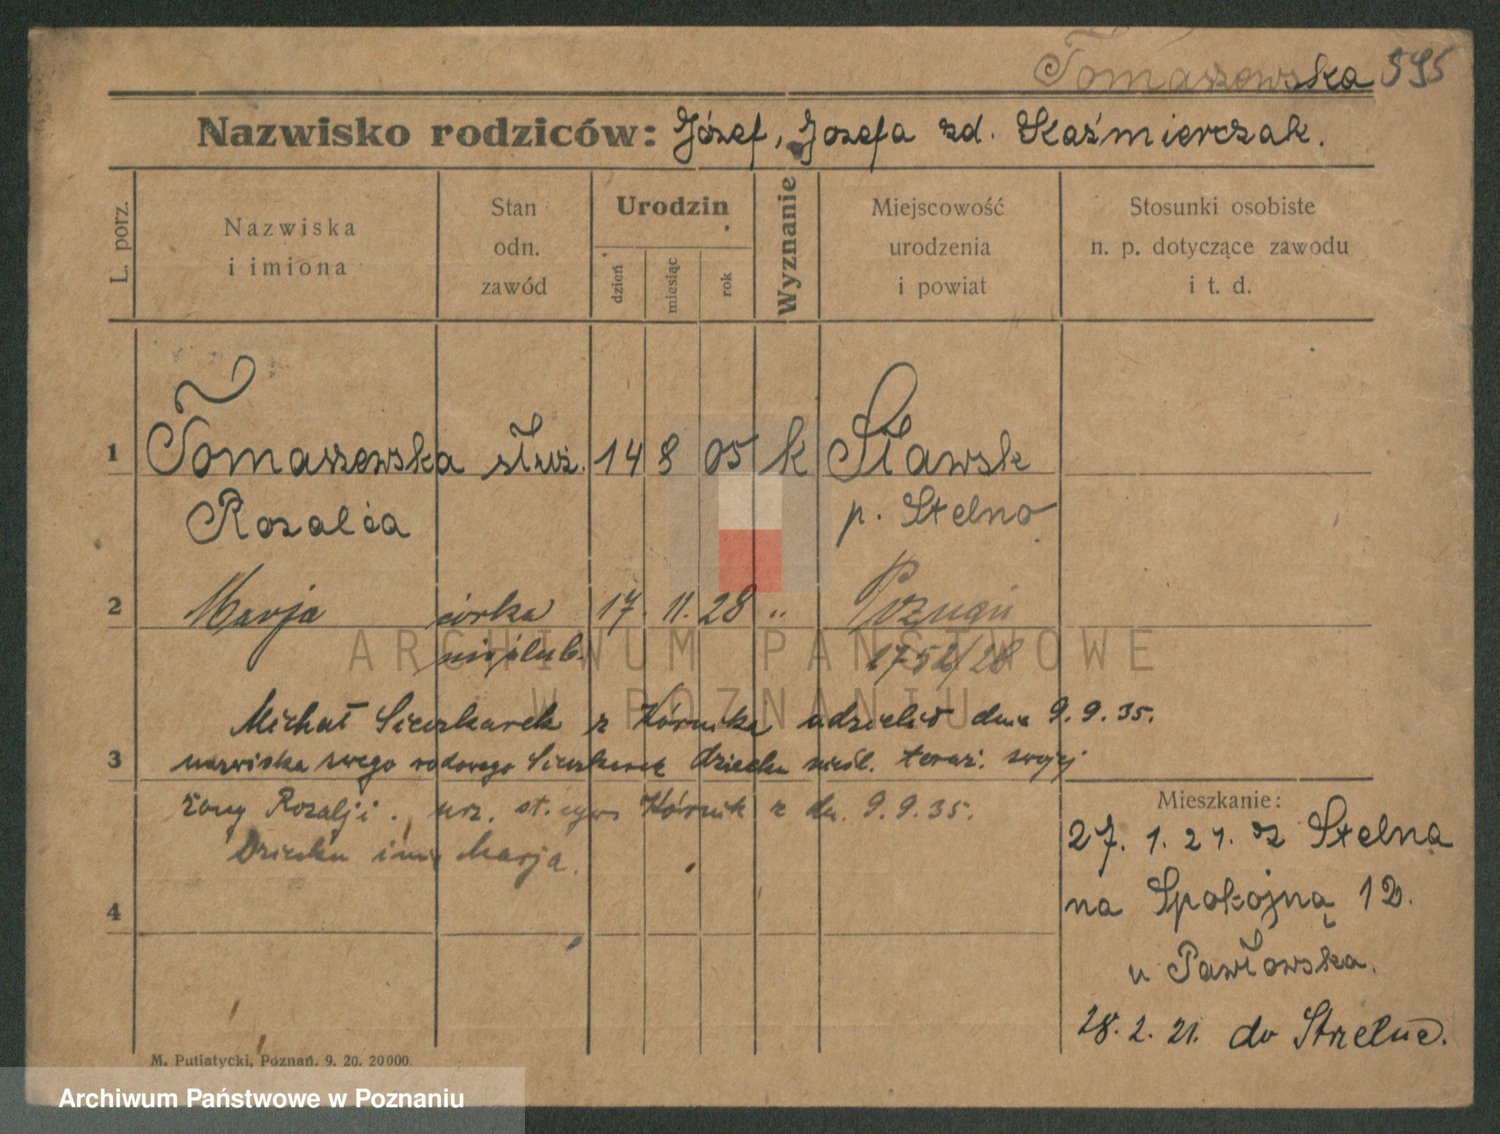 Tomaszewska 595
Nazwisko rodziców: Józef, Jozefa zd. Kaźmierczak.
L. porz.
Nazwiska i imiona
Stan odn. zawód
Urodzin
dzień
miesiąc
rok
Wyznanie
Miejscowość urodzenia i powiat
Stosunki osobiste n. p. dotyczące zawodu i t. d.
1 Tomaszewska służ. 14 8 05 k Sławsk
Rozalia p. Stelno
2 Marja córka 17. 11. 28 „
nieślub. 1752/28
Michał Sieczkarek z Kórnika udzielił dnia 9.9.35.
3 nazwiska swego rodowego Sieczkarek dziecku nieśl. teraź. swojej
żony Rozalji. urz. st. cyw. Kórnik z dn. 9.9.35.
Dziecku imię Marja.
4
Mieszkanie:
27. 1. 21. z Stelna
na Spokojną 12.
u Pawłowska.
28. 2. 21. do Strzelna.
M. Putiatycki, Poznań. 9. 20. 20000.
ARCHIWUM PAŃSTWOWE
W POZNANIU
Archiwum Państwowe w Poznaniu